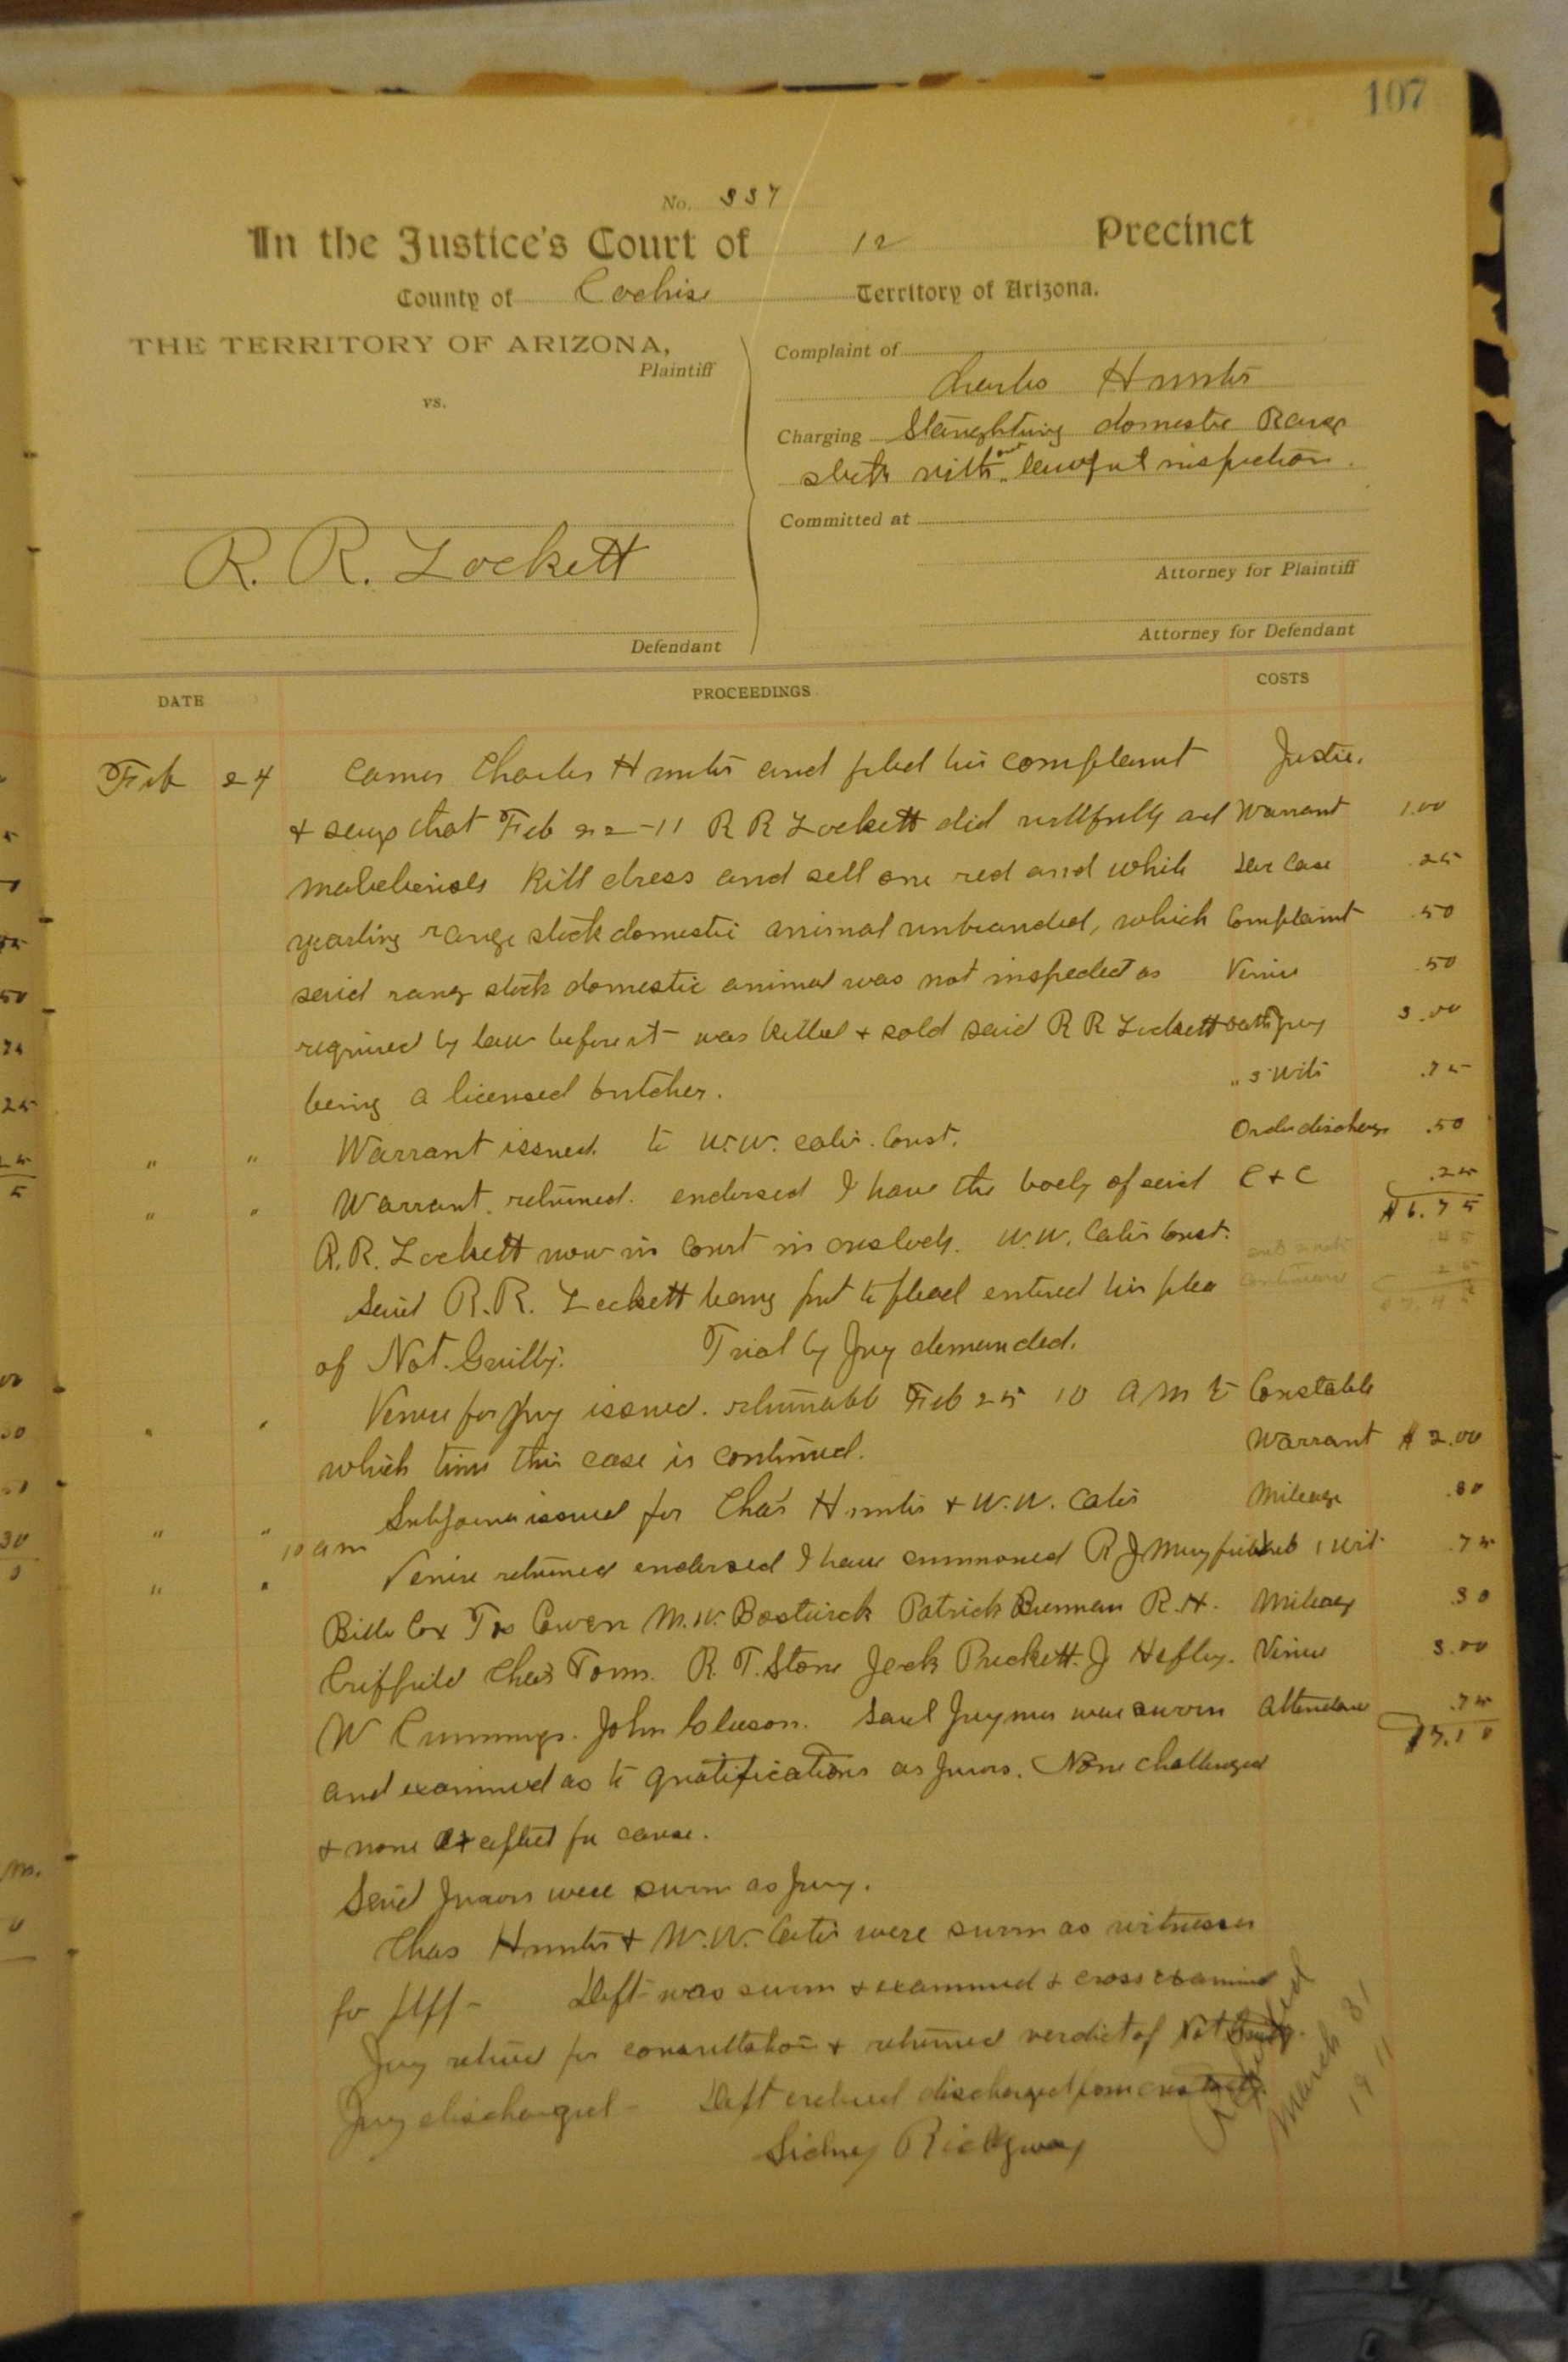 107
No. 337
In the Justice's Court of 12 Precinct
County of Cochise Territory of Arizona.
THE TERRITORY OF ARIZONA,
Plaintiff
vs.
R. R. Lockett
Defendant
Complaint of
Charles Hunter
Charging Slaughtering domestic Range
stock without lawful inspection.
Committed at
Attorney for Plaintiff
Attorney for Defendant
DATE PROCEEDINGS COSTS
Feb 24 Comes Charles Hunter and filed his complaint Justice.
& says that Feb 22-11 R R Lockett did willfully and Warrant 1.00
maliciously kill dress and sell one red and white Case .25
yearling range stock domestic animal unbranded, which Complaint .50
said range stock domestic animal was not inspected as Venire .50
required by law before it was killed & sold said R R Lockett oath jury 3.00
being a licensed butcher. " 3 Wits .75
" " Warrant issued. to W.W. Cates. Const. Order discharge .50
" " Warrant. returned. endorsed I have the body of said C & C .25
R.R. Lockett now in Court in custody. W.W. Cates Const. $6.75
Said R.R. Lockett being put to plead entered his plea continuance
of Not. Guilty. Trial by Jury demanded.
" " Venire for Jury issued. returnable Feb 25 10 A M to Constable
which time this case is continued. Warrant $ 2.00
" " Subpoena issued for Chas Hunter & W.W. Cates Mileage .30
" " 10 am Venire returned endorsed I have summoned R J Mayfield sub 1 wit. .75
Bill Cox Cowen M.W. Bostwick Patrick Brennan R.H. Mileage .30
Chas Toms. R. T. Stone Jack Puckett. J Hefley. Venire 3.00
W Cummings. John Gleeson. Said Jurymen were sworn Attendance .75
and examined as to qualifications as Jurors. None challenged $7.10
& none excepted for cause.
Said Jurors were sworn as Jury.
Chas Hunter & W.W. Cates were sworn as witnesses
for Plff - Deft was sworn & examined & cross examined
Jury retired for consultation & returned verdict of Not Guilty.
Jury discharged - Deft ordered discharged from custody.
Sidney Ridgway
March 31
1911